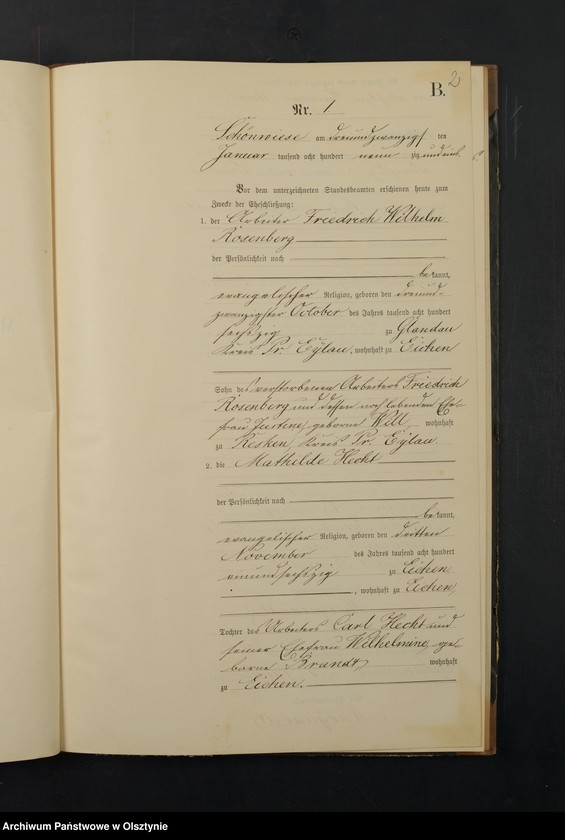 B.
2
Nr. 1
Schönwiese am dreiundzwanzigsten
Januar tausend acht hundert neunzig und eins
Vor dem unterzeichneten Standesbeamten erschienen heute zum
Zwecke der Eheschließung:
1. der Arbeiter Friedrich Wilhelm
Rosenberg
der Persönlichkeit nach
bekannt,
evangelischer Religion, geboren den dreiund-
zwanzigsten October des Jahres tausend acht hundert
sechszig zu Glandau
Kreis Pr. Eylau, wohnhaft zu Eichen
Sohn des verstorbenen Arbeiters Friedrich
Rosenberg und dessen noch lebenden Ehe-
frau Justine, geborne Will, wohnhaft
zu Kesken, Kreis Pr. Eylau
2. die Mathilde Hecht
der Persönlichkeit nach
bekannt,
evangelischer Religion, geboren den dritten
November des Jahres tausend acht hundert
einundsechszig zu Eichen
, wohnhaft zu Eichen,
Tochter des Arbeiters Carl Hecht und
seiner Ehefrau Wilhelmine, ge-
borne Brandt, wohnhaft
zu Eichen.
Archiwum Państwowe w Olsztynie